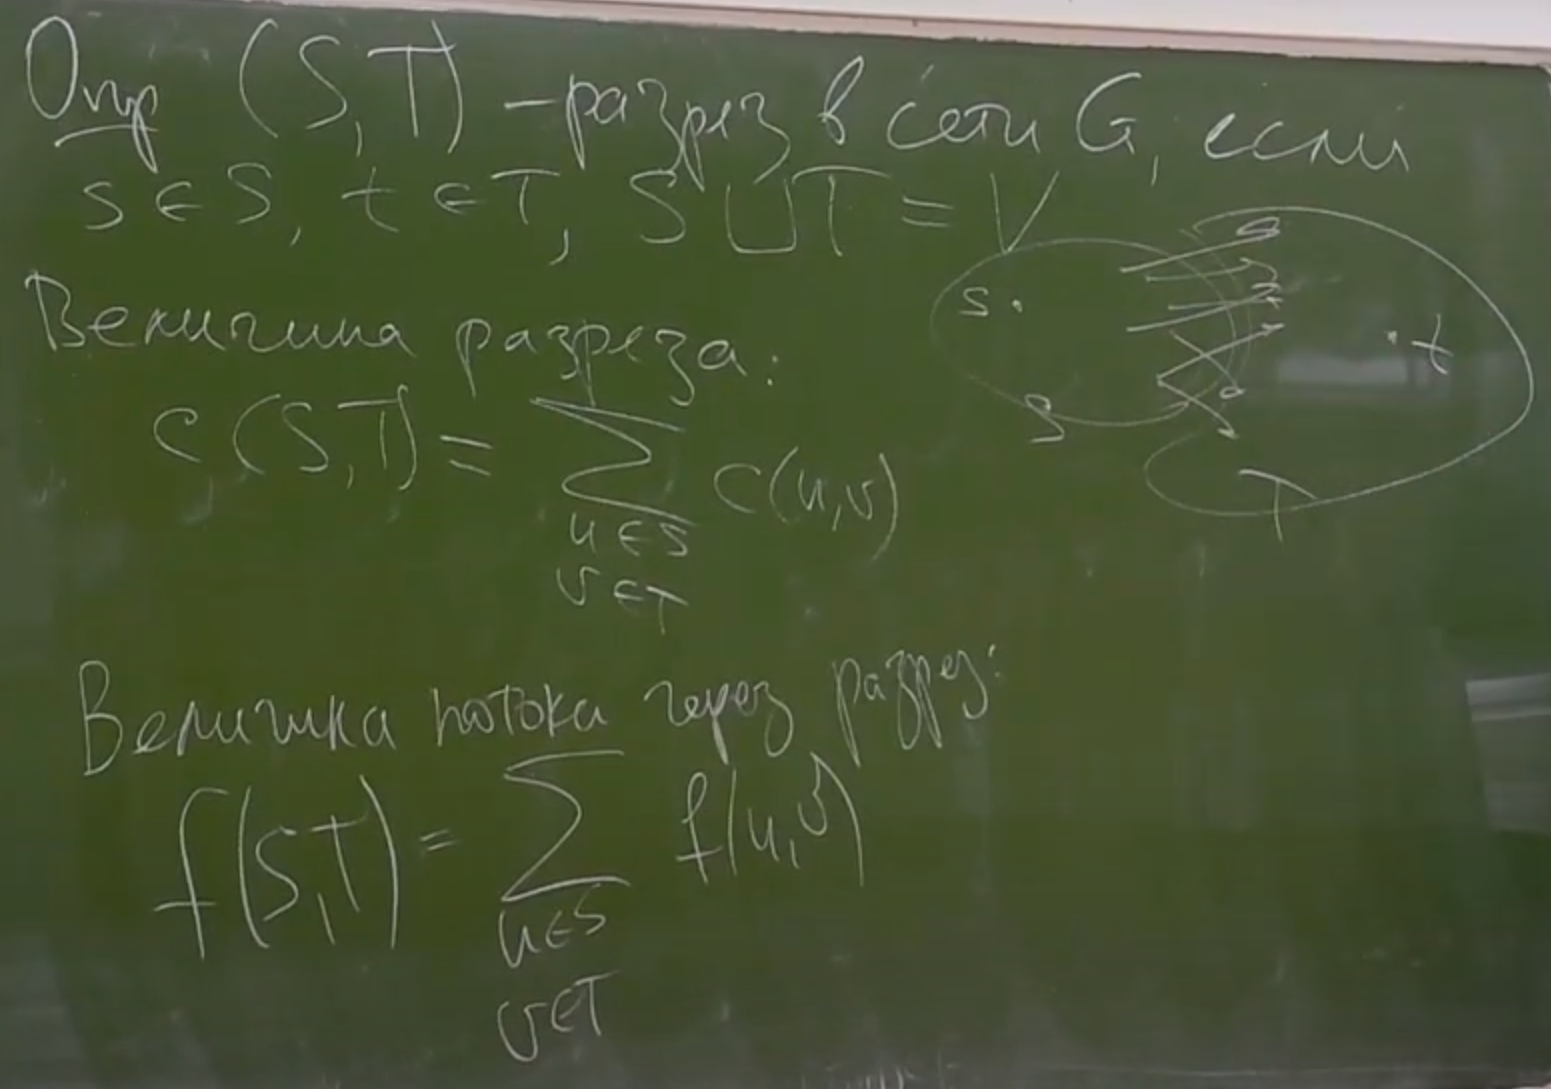 Опр (S,T) – разрез в сети G, если
s∈S, t∈T, S⊔T = V
Величина разреза:
c(S,T) = ∑ c(u,v)
u∈S
v∈T
s
t
S
T
Величина потока через разрез:
f(S,T) = ∑ f(u,v)
u∈S
v∈T